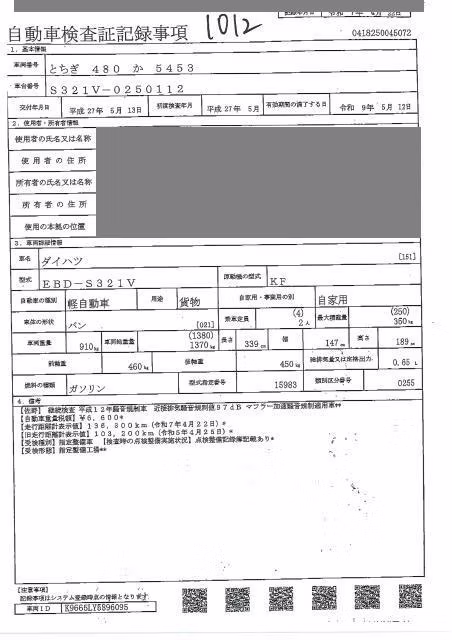 1012
自動車検査証記録事項
0418250045072
1．基本情報
車両番号 とちぎ 480 か 5453
車台番号 S321V-0250112
交付年月日 平成 27年 5月 13日 初度検査年月 平成 27年 5月 有効期間の満了する日 令和 9年 5月 12日
2．使用者・所有者情報
使用者の氏名又は名称
使用者の住所
所有者の氏名又は名称
所有者の住所
使用の本拠の位置
3．車両詳細情報
車名 ダイハツ [151]
型式 EBD-S321V 原動機の型式 KF
自動車の種別 軽自動車 用途 貨物 自家用・事業用の別 自家用
車体の形状 バン [021] 乗車定員 (4) 2人 最大積載量 (250) 350kg
車両重量 910kg 車両総重量 (1380) 1370kg 長さ 339cm 幅 147cm 高さ 189cm
前軸重 460kg 後軸重 450kg 総排気量又は定格出力 0.65L
燃料の種類 ガソリン 型式指定番号 15983 類別区分番号 0255
4．備考
【佐野】 継続検査 平成12年騒音規制車 近接排気騒音規制値97dB マフラー加速騒音規制適用車**
【自動車重量税額】¥6,600*
【走行距離計表示値】136,300km（令和7年4月22日）*
【旧走行距離計表示値】103,200km（令和5年4月25日）*
【受検種別】指定整備車 【検査時の点検整備実施状況】点検整備記録簿記載あり*
【受検形態】指定整備工場**
【注意事項】
記録事項はシステム登録時点の情報となります。
車両ID K9665LY5896095